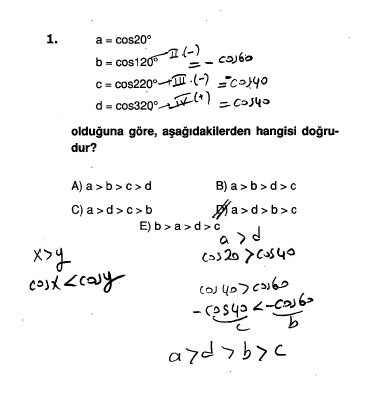 1. a = cos20°
b = cos120° II (-) = - cos60
c = cos220° III (-) = -cos40
d = cos320° IV (+) = cos40
olduğuna göre, aşağıdakilerden hangisi doğru-
dur?
A) a > b > c > d B) a > b > d > c
C) a > d > c > b D) a > d > b > c
E) b > a > d > c
a > d
x > y cos20 > cos40
cosx < cosy
cos40 > cos60
-cos40 < -cos60
c b
a > d > b > c